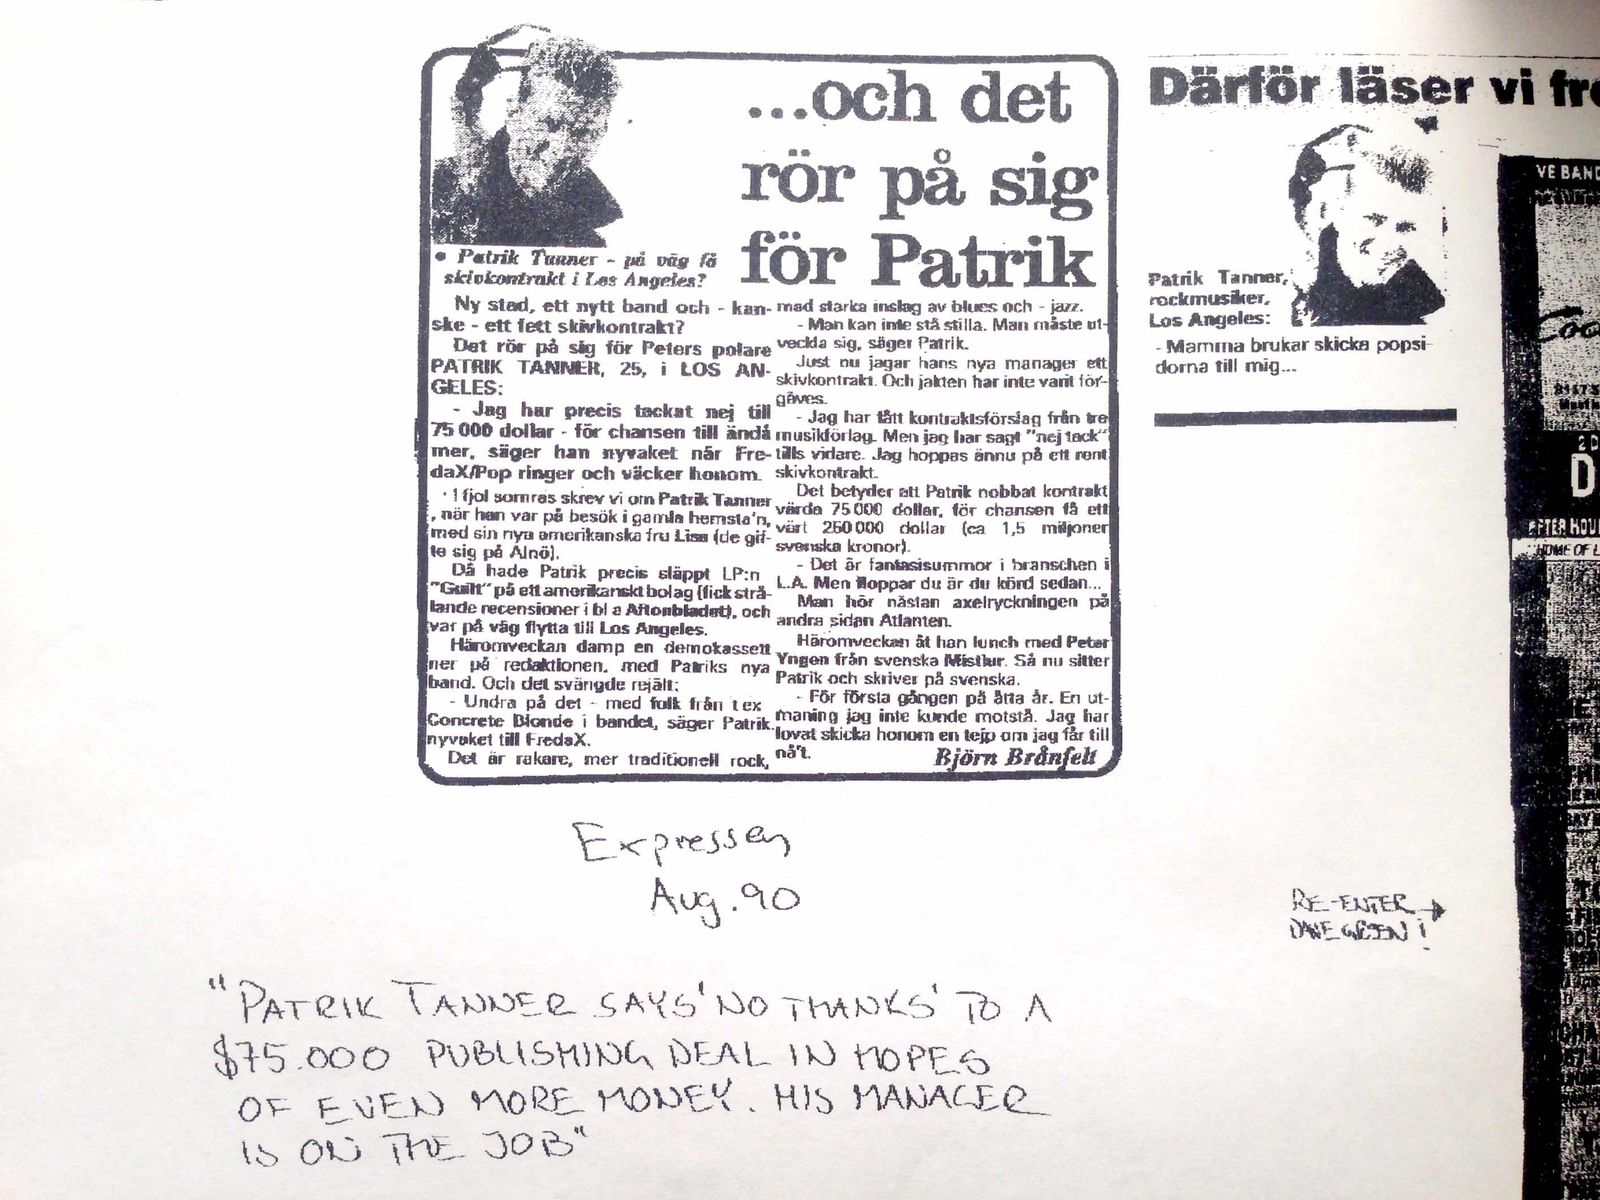 ...och det
rör på sig
för Patrik
• Patrik Tanner - på väg få
skivkontrakt i Los Angeles?
Ny stad, ett nytt band och - kan-
ske - ett fett skivkontrakt?
Det rör på sig för Peters polare
PATRIK TANNER, 25, i LOS AN-
GELES:
- Jag har precis tackat nej till
75 000 dollar - för chansen till ändå
mer, säger han nyvaket när Fre-
daX/Pop ringer och väcker honom.
I fjol somras skrev vi om Patrik Tanner
, när han var på besök i gamla hemsta'n,
med sin nya amerikanska fru Lisa (de gif-
te sig på Alnö).
Då hade Patrik precis släppt LP:n
"Guilt" på ett amerikanskt bolag (fick strå-
lande recensioner i bl a Aftonbladet), och
var på väg flytta till Los Angeles.
Häromveckan damp en demokassett
ner på redaktionen, med Patriks nya
band. Och det svängde rejält:
- Undra på det - med folk från t ex
Concrete Blonde i bandet, säger Patrik
nyvaket till FredaX.
Det är rakare, mer traditionell rock,
med starka inslag av blues och - jazz.
- Man kan inte stå stilla. Man måste ut-
veckla sig, säger Patrik.
Just nu jagar hans nya manager ett
skivkontrakt. Och jakten har inte varit för-
gäves.
- Jag har fått kontraktsförslag från tre
musikförlag. Men jag har sagt "nej tack"
tills vidare. Jag hoppas ännu på ett rent
skivkontrakt.
Det betyder att Patrik nobbat kontrakt
värda 75 000 dollar, för chansen få ett
värt 250 000 dollar (ca 1,5 miljoner
svenska kronor).
- Det är fantasisummor i branschen i
L.A. Men floppar du är du körd sedan...
Man hör nästan axelryckningen på
andra sidan Atlanten.
Häromveckan åt han lunch med Peter
Yngen från svenska Mistlur. Så nu sitter
Patrik och skriver på svenska.
- För första gången på åtta år. En ut-
maning jag inte kunde motstå. Jag har
lovat skicka honom en tejp om jag får till
nå't.
Björn Brånfelt
Därför läser vi fre
Patrik Tanner,
rockmusiker,
Los Angeles:
- Mamma brukar skicka popsi-
dorna till mig...
VE BAND
2 D
D
AFTER HOU
"HOME OF L
Expressen
Aug. 90
RE-ENTER →
DAVE GREEN!
"PATRIK TANNER SAYS 'NO THANKS' TO A
$75.000 PUBLISHING DEAL IN HOPES
OF EVEN MORE MONEY. HIS MANAGER
IS ON THE JOB"